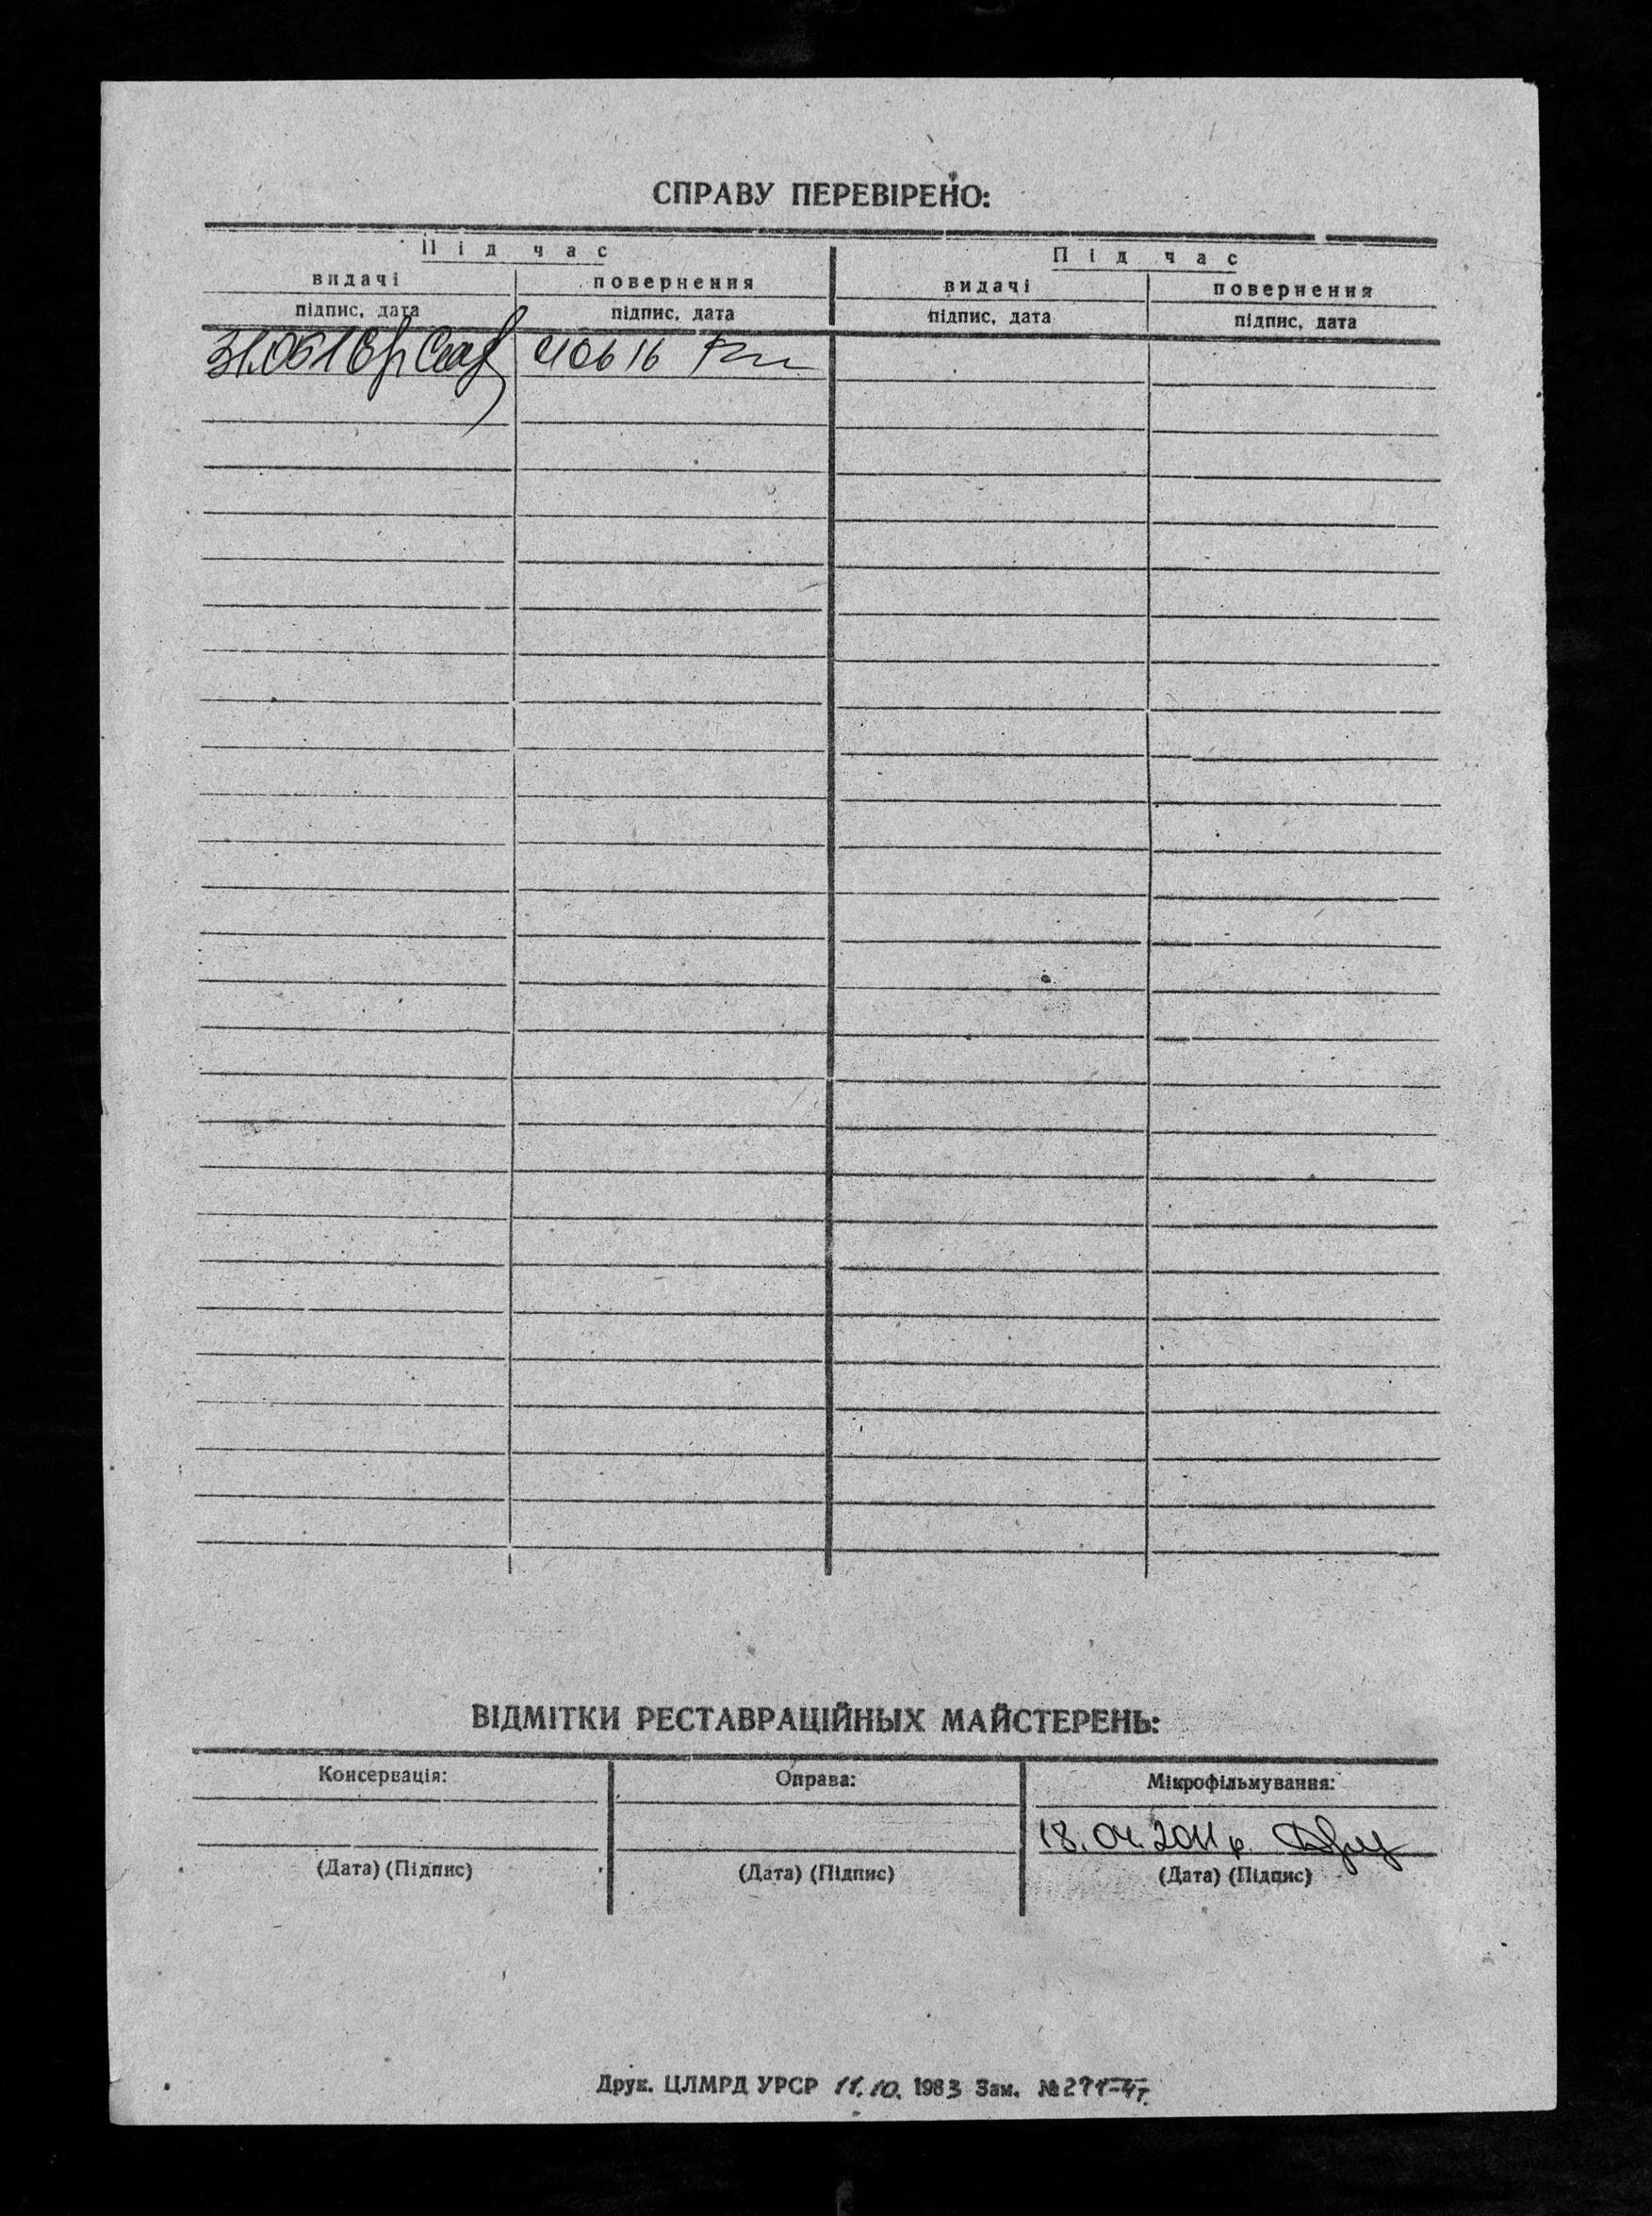 СПРАВУ ПЕРЕВІРЕНО:
Під час Під час
видачі повернення видачі повернення
підпис, дата підпис, дата підпис, дата підпис, дата
31.0516р 0616
ВІДМІТКИ РЕСТАВРАЦІЙНЫХ МАЙСТЕРЕНЬ:
Консервація: Оправа: Мікрофільмування:
18.04.2011 р.
(Дата) (Підпис) (Дата) (Підпис) (Дата) (Підпис)
Друк. ЦЛМРД УРСР 11.10.1983 Зам. №